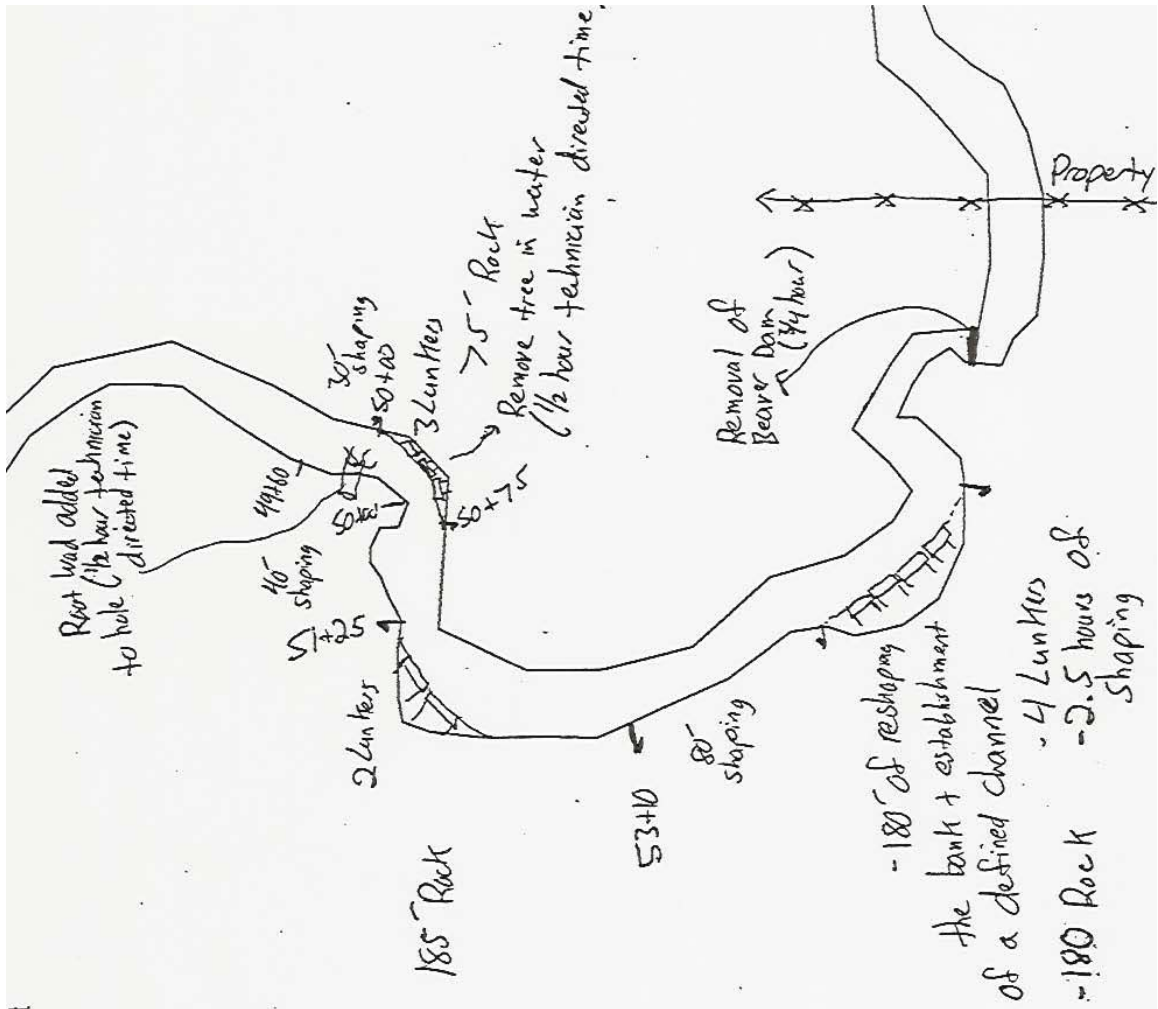 Root Wad added
to hole (1/2 hour technician
directed time)
49+60
40'
shaping
50+00
30'
shaping
50+00
3 Lunkers
75' Rock
Remove tree in water
(1/2 hour technician directed time)
50+75
51+25
2 Lunkers
185' Rock
53+10
80'
shaping
Removal of
Beaver Dam
(3/4 hour)
Property
-180' of reshaping
the bank + establishment
of a defined channel
-180 Rock
-4 Lunkers
-2.5 hours of
shaping